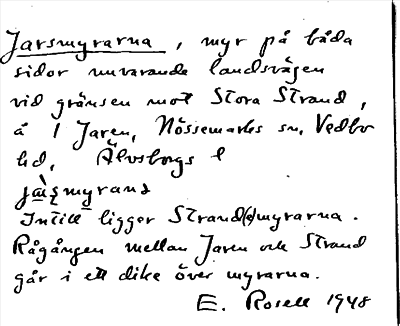 Jarsmyrarna, myr på båda
sidor nuvarande landsvägen
vid gränsen mot Stora Strand,
å 1 Jaren, Nössemarks sn, Vedbo
hd, Älvsborgs l
Intill ligger Strand(e)myrarna.
Rågången mellan Jaren och Strand
går i ett dike över myrarna.
E. Rosell 1948